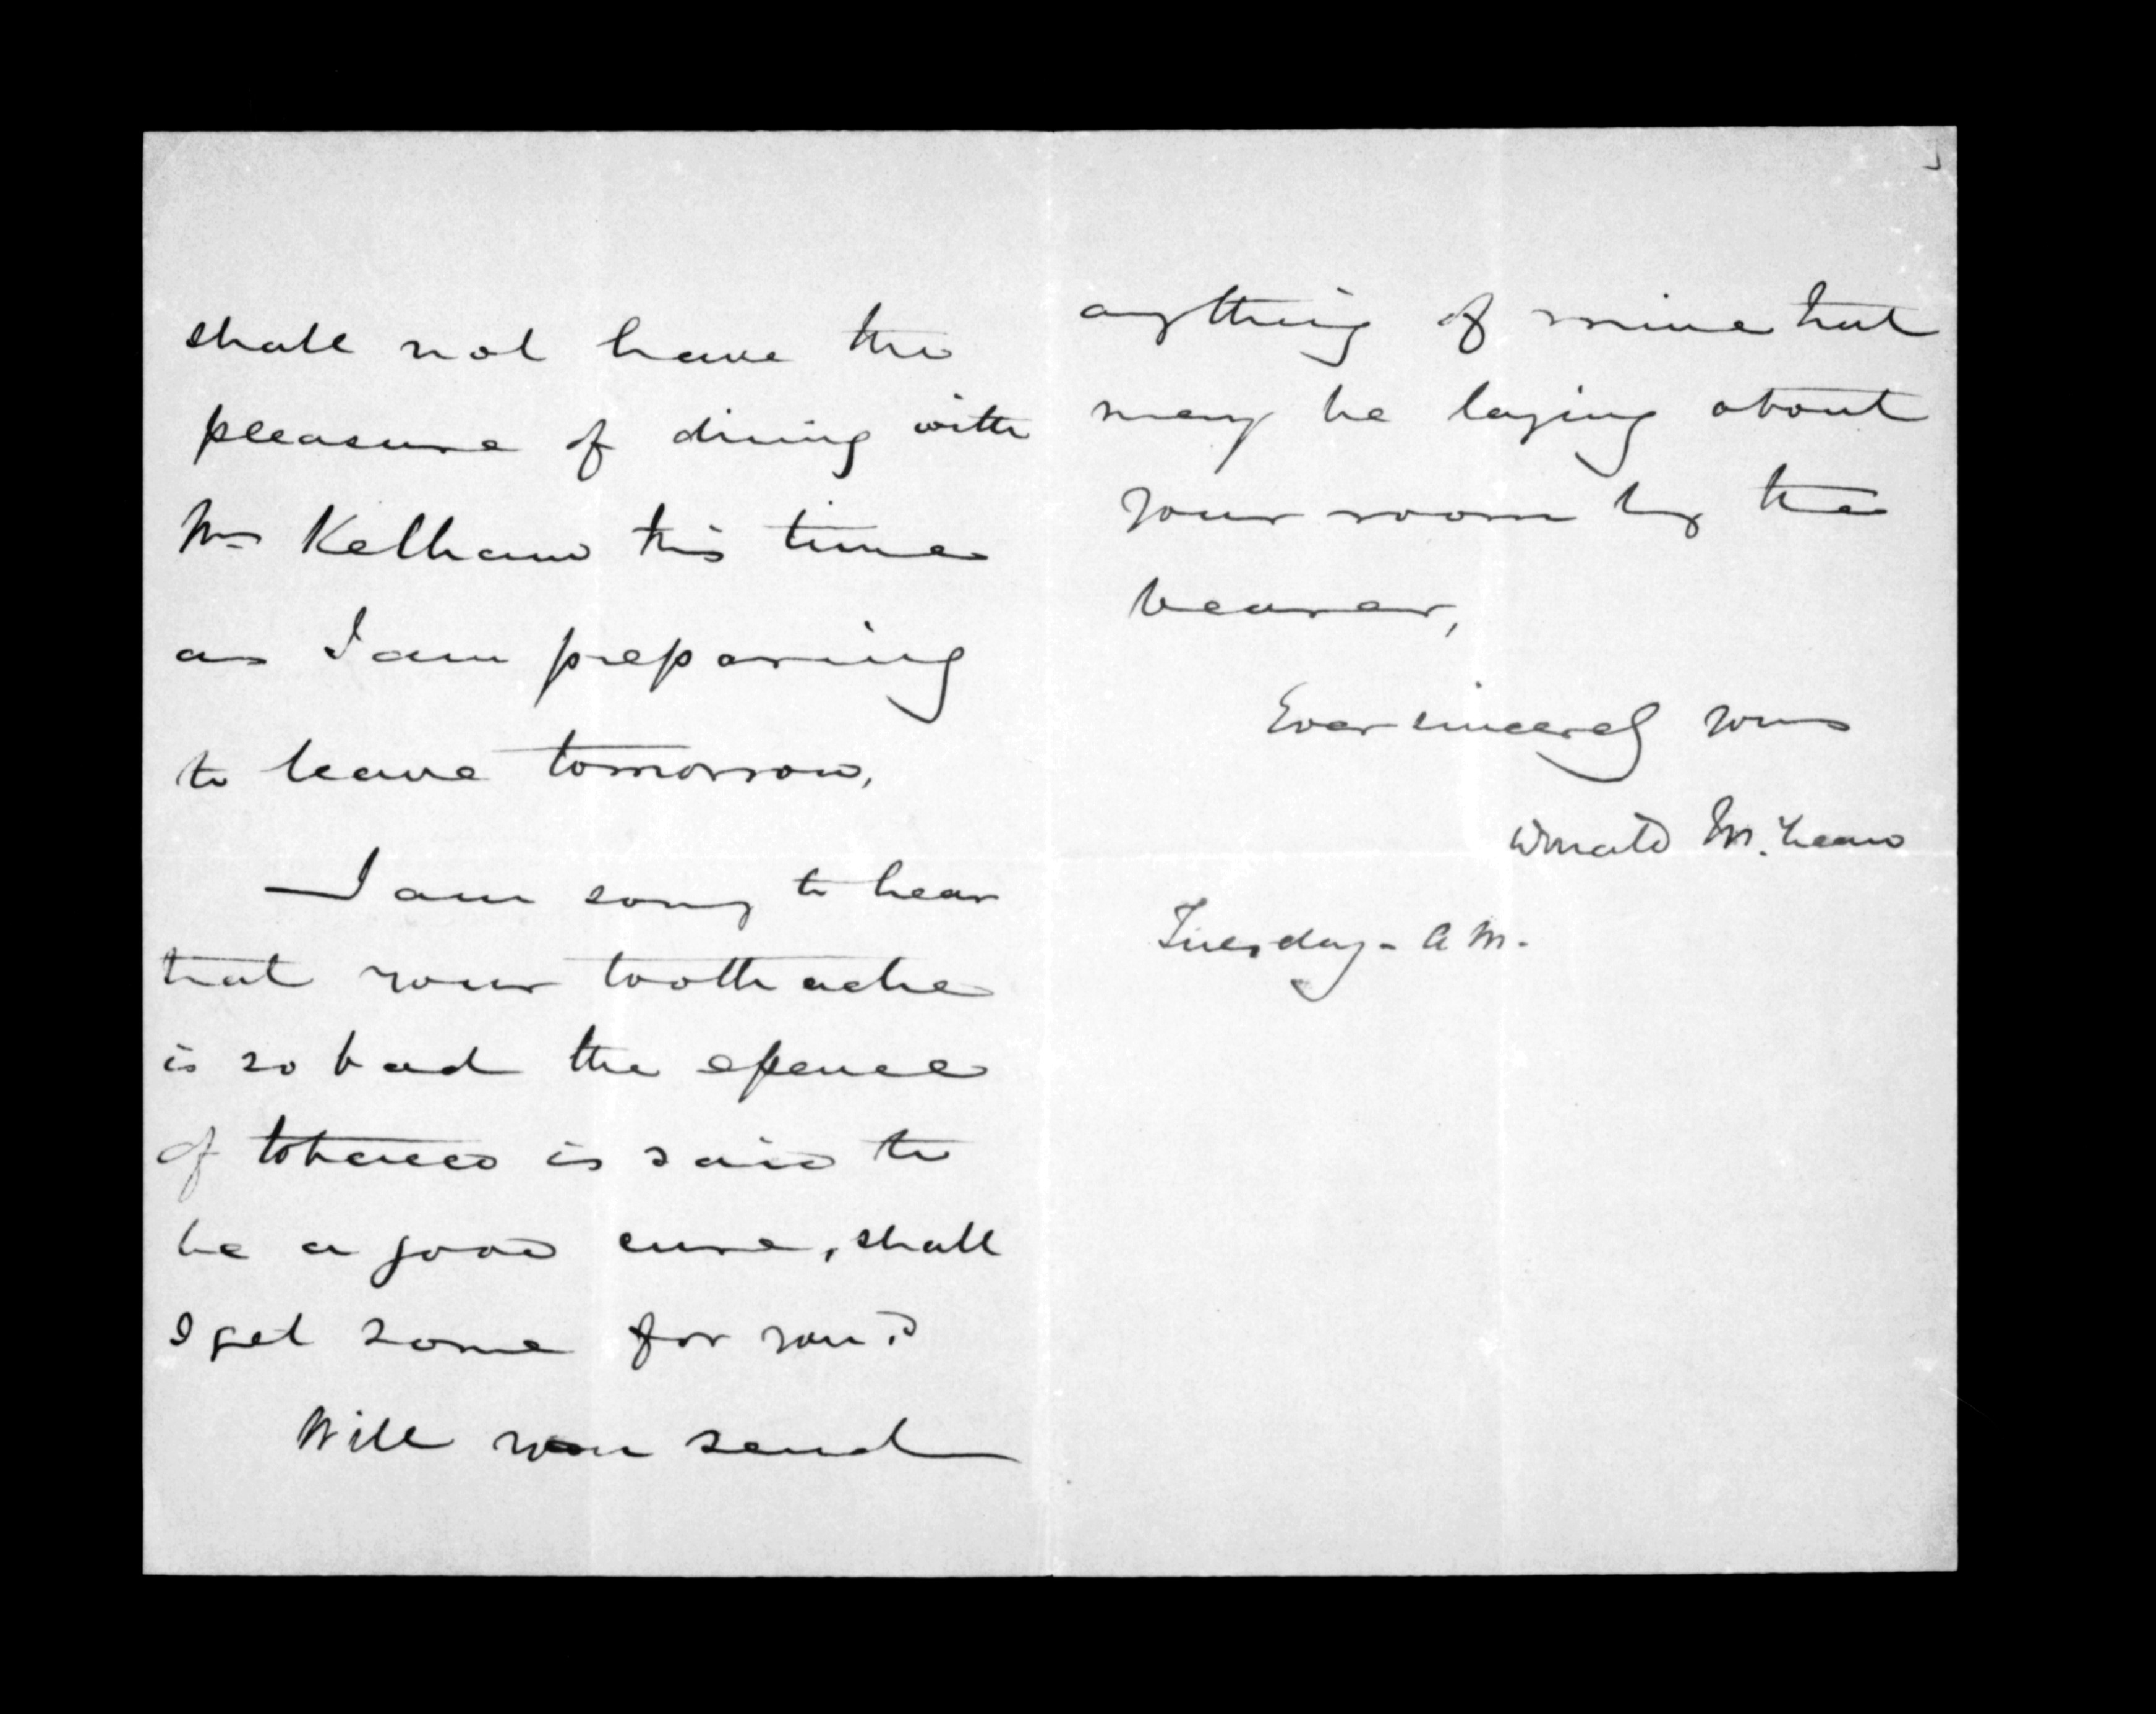 shall not have the
pleasure of dining with
Mrs Kelham this time
as I am preparing
to leave tomorrow,
I am sorry to hear
that your toothache
is so bad the essence
of tobacco is said to
be a good cure, shall
I get some for you?
Will you send
anything of mine that
may be laying about
your room by the
bearer,
Ever sincerely yours
Donald McLean
Tuesday - A M.